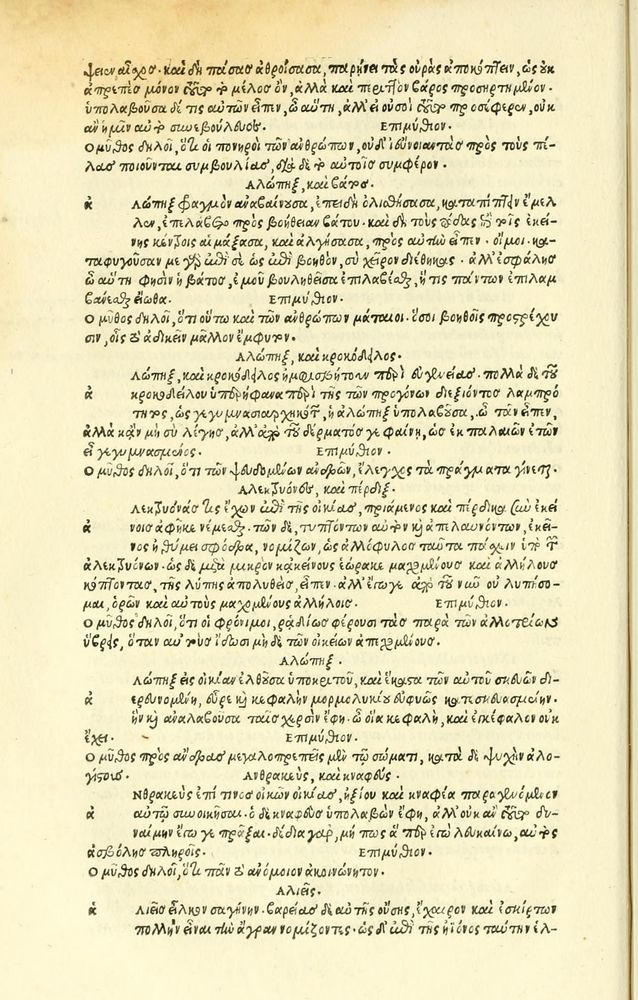 ψειν αἶσχος. καὶ δὴ πάσας ἀθροίσασα, παρῄνει τὰς οὐρὰς ἀποκόπτειν, ὡς οὐκ
ἀπρεπὲς μόνον ἔχον τὸ μέλος ὂν, ἀλλὰ καὶ περιττὸν βάρος προσηρτημένον.
ὑπολαβοῦσα δέ τις αὐτῶν εἶπεν, ὦ αὕτη, ἀλλ' εἰ οὐ σοὶ τοῦτο προσέφερεν, οὐκ
ἂν ἡμῖν αὐτὸ συνεβούλευες. Ἐπιμύθιον.
Ὁ μῦθος δηλοῖ, ὅτι οἱ πονηροὶ τῶν ἀνθρώπων, οὐ δι' εὔνοιαν τὰς πρὸς τοὺς πέ-
λας ποιοῦνται συμβουλίας, διὰ δὲ τὸ αὐτοῖς συμφέρον.
Ἀλώπηξ, καὶ βάτος.
ἀ Λώπηξ φραγμὸν ἀναβαίνουσα, ἐπειδὴ ὀλισθήσασα, καταπίπτειν ἔμελ
λεν, ἐπελάβετο πρὸς βοήθειαν βάτου. καὶ δὴ τοὺς πόδας ἐπὶ τοῖς ἐκεί-
νης κέντροις αἱμάξασα, καὶ ἀλγήσασα, πρὸς αὐτὴν εἶπεν. οἴμοι. κα-
ταφυγοῦσαν με γὰρ ἐπὶ σὲ ὡς ἐπὶ βοηθὸν, σὺ χεῖρον διέθηκας. ἀλλ' ἐσφάλης
ὦ αὕτη φησὶν ἡ βάτος, ἐμοῦ βουληθεῖσα ἐπιλαβέσθαι, ἥτις πάντων ἐπιλαμ
βάνεσθαι εἴωθα. Ἐπιμύθιον.
Ὁ μῦθος δηλοῖ, ὅτι οὕτω καὶ τῶν ἀνθρώπων μάταιοι. ὅσοι βοηθοῖς προστρέχου
σιν, οἷς τὸ ἀδικεῖν μᾶλλον ἔμφυτον.
Ἀλώπηξ, καὶ κροκόδειλος.
ἀ Λώπηξ, καὶ κροκόδειλος ἠμφισβήτουν περὶ εὐγενείας. πολλὰ δὲ τοῦ
κροκοδείλου ὑπερήφανα περὶ τῆς τῶν προγόνων διεξιόντος λαμπρό
τητος, ὡς γεγυμνασιαρχηκότων, ἡ ἀλώπηξ ὑπολαβοῦσα, ὦ τᾶν εἶπεν,
ἀλλὰ κἂν μὴ σὺ λέγῃς, ἀλλ' ἀπὸ τοῦ δέρματός γε φαίνῃ, ὡς ἐκ παλαιῶν ἐτῶν
εἶ γεγυμνασμένος. Ἐπιμύθιον.
Ὁ μῦθος δηλοῖ, ὅτι τῶν ψευδομένων ἀνδρῶν, ἔλεγχος τὰ πράγματα γίνεται.
Ἀλεκτρυόνες, καὶ πέρδιξ.
ἀ Λεκτρυόνας τις ἔχων ἐπὶ τῆς οἰκίας, πριάμενος καὶ πέρδικα σὺν ἐκεί
νοις ἀφῆκε νέμεσθαι. τῶν δὲ, τυπτόντων αὐτὸν καὶ ἀπελαυνόντων, ἐκεῖ-
νος ἠθύμει σφόδρα, νομίζων, ὡς ἀλλόφυλος ταῦτα πάσχειν ὑπὸ τῶν
ἀλεκτρυόνων. ὡς δὲ μετὰ μικρὸν κἀκείνους ἑώρακε μαχομένους καὶ ἀλλήλους
κόπτοντας, τῆς λύπης ἀπολυθεὶς, εἶπεν. ἀλλ' ἔγωγε ἀπὸ τοῦ νῦν οὐ λυπήσο-
μαι, ὁρῶν καὶ αὐτοὺς μαχομένους ἀλλήλοις. Ἐπιμύθιον.
Ὁ μῦθος δηλοῖ, ὅτι οἱ φρόνιμοι, ῥᾳδίως φέρουσι τὰς παρὰ τῶν ἀλλοτρίων
ὕβρεις, ὅταν αὐτοὺς ἴδωσι μηδὲ τῶν οἰκείων ἀπεχομένους.
Ἀλώπηξ.
ἀ Λώπηξ εἰς οἰκίαν ἐλθοῦσα ὑποκριτοῦ, καὶ ἕκαστα τῶν αὐτοῦ σκευῶν δι-
ερευνομένη, εὗρε καὶ κεφαλὴν μορμολυκίου εὐφυῶς κατεσκευασμένην.
ἣν καὶ ἀναλαβοῦσα ταῖς χερσὶν ἔφη. ὦ οἵα κεφαλὴ, καὶ ἐγκέφαλον οὐκ
ἔχει. Ἐπιμύθιον.
Ὁ μῦθος πρὸς ἄνδρας μεγαλοπρεπεῖς μὲν τῷ σώματι, κατὰ δὲ ψυχὴν ἀλο-
γίστους. Ἀνθρακεὺς, καὶ κναφεύς.
ἀ Νθρακεὺς ἐπί τινος οἰκῶν οἰκίας, ἠξίου καὶ κναφέα παραγενόμενον
αὐτῷ συνοικῆσαι. ὁ δὲ κναφεὺς ὑπολαβὼν ἔφη, ἀλλ' οὐκ ἂν τοῦτο δυ-
ναίμην ἔγωγε πρᾶξαι. δέδια γὰρ, μή πως ἅπερ ἐγὼ λευκαίνω, αὐτὸς
ἀσβόλης πληροῖς. Ἐπιμύθιον.
Ὁ μῦθος δηλοῖ, ὅτι πᾶν τὸ ἀνόμοιον ἀκοινώνητον.
Ἁλιεῖς.
ἁ Λιεῖς εἷλκον σαγήνην. βαρείας δὲ αὐτῆς οὔσης, ἔχαιρον καὶ ἐσκίρτων
πολλὴν εἶναι τὴν ἄγραν νομίζοντες. ὡς δὲ ἐπὶ τῆς ἠϊόνος ταύτην ἑλ-